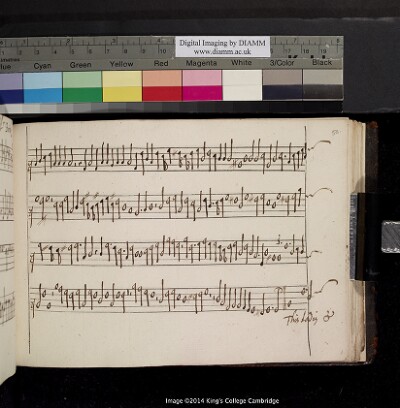 Digital Imaging by DIAMM
www.diamm.ac.uk
Blue Cyan Green Yellow Red Magenta White 3/Color Black
This Ladis
Image ©2014 King's College Cambridge